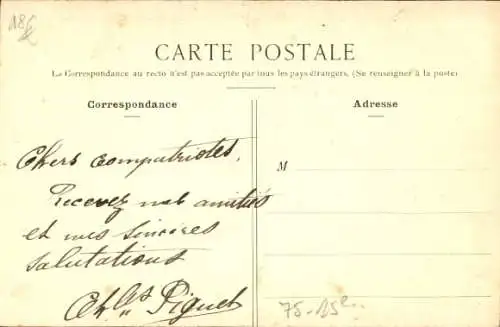 CARTE POSTALE
La Correspondance au recto n'est pas acceptée par tous les pays étrangers. (Se renseigner à la poste)
Correspondance
Adresse
Chers compatriotes,
M
Recevez mes amitiés
et mes sincères
salutations
Ch. Piguet
75-15